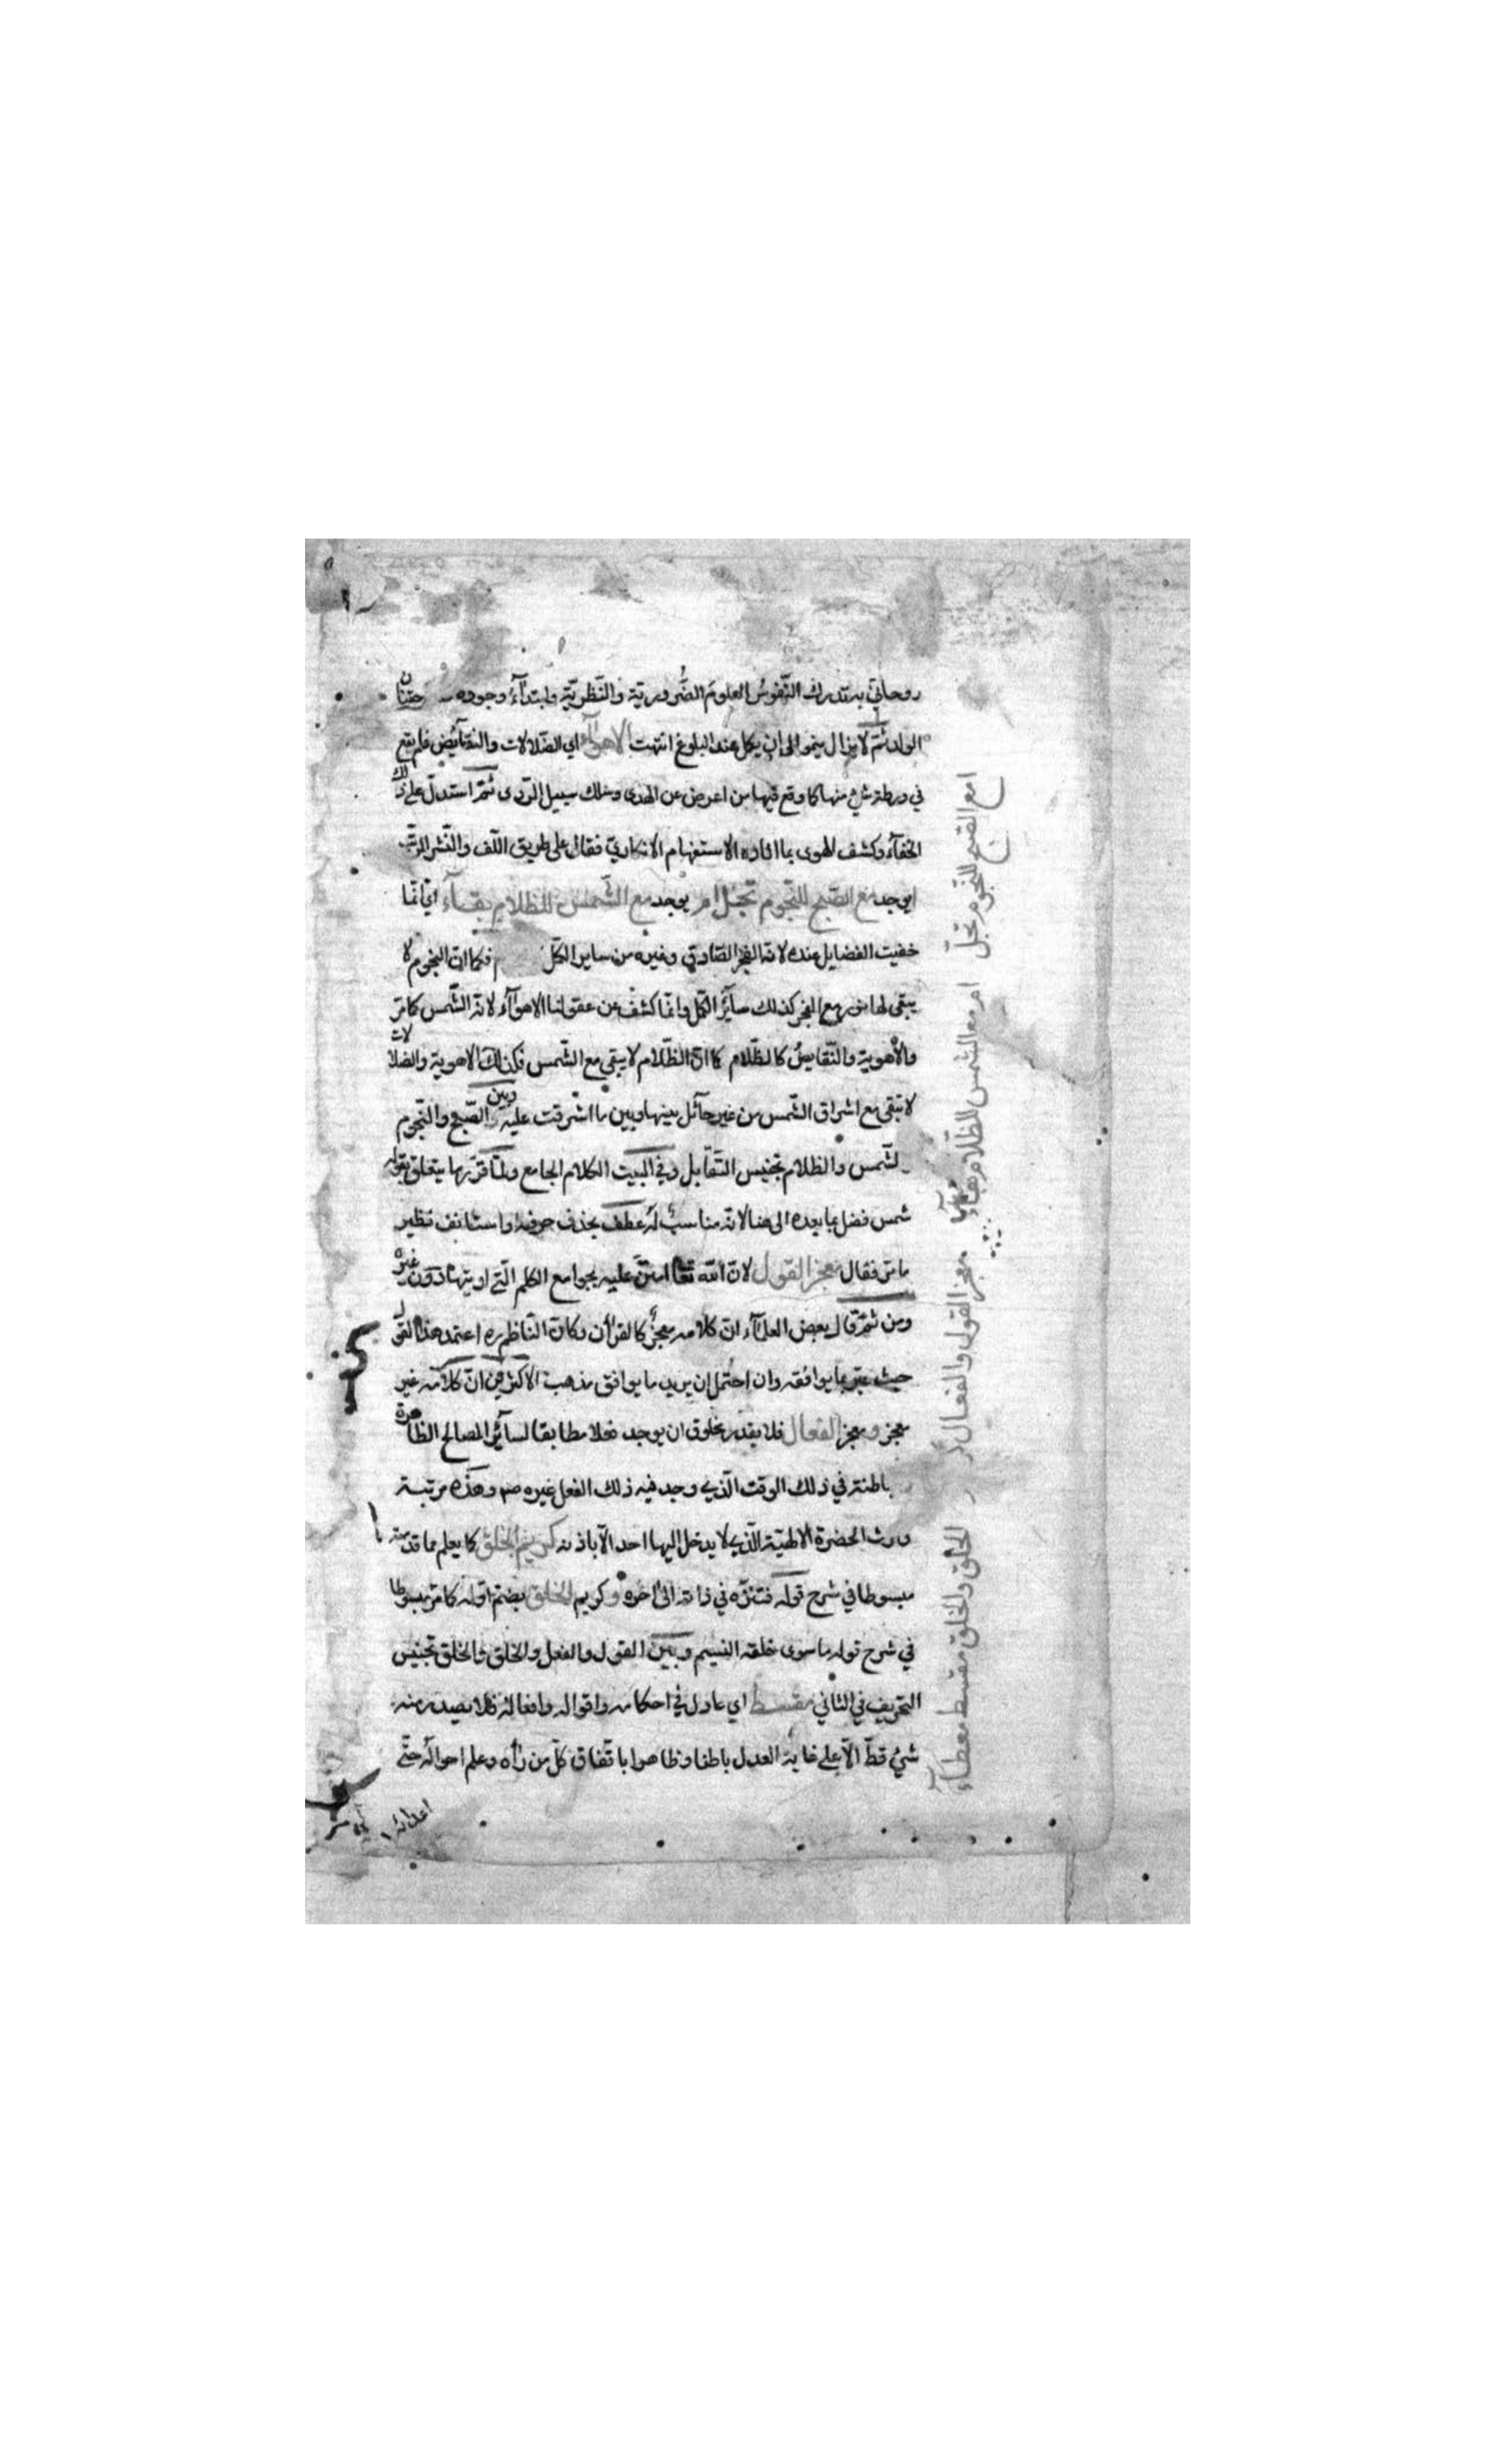 روحاني به تدرك النفوس العلوم الضرورية والنظرية وابتداء وجوده
الولد ثم لا يزال ينمو الى ان يكمل عند البلوغ انتهت الاهوآء اي الضلالات والنقايض فلم يقع
في ورطة شئ منها كما وقع فيها من اعرض عن الهدى وسلك سبيل الردى ثمّ استدل على ذلك
الخفآء وكشف الهوى بما افاده الاستفهام الانكاري فقال على طريق اللف والنشر المرتب
ايوجد مع الصّبح للنّجوم تجلّ ام يوجد مع الشّمس للظلام بقآء اي انما
خفيت الفضايل عنده لانه الفجر الصادق وغيره من ساير الكمّل فكما ان النجوم لا
يبقى لها نور مع الفجر كذلك سآئر الكمّل وانما كشف عن عقولنا الاهوآء لانه الشّمس كما مرّ
والاهوية والنّقايص كالظّلام كما ان الظّلام لا يبقى مع الشّمس فكذلك الاهوية والضلالات
لا تبقى مع اشراق الشّمس من غير حآئل بينها وبين ما اشرقت عليه وبين الصّبح والنّجوم
لشّمس والظلام تجنيس التّقابل وفي البيت الكلام الجامع ولمّا قرّر ما يتعلق بقوله
شمس فضل بما بعده الى هنا لانه مناسب له عطف بحذف حرفه او استانف نظير
ما مرّ فقال معجز القول لان الله تعا امتنّ عليه بجوامع الكلم الّتي اوتيها دون غيره
ومن ثمّ قال بعض العلمآء ان كلامه معجز كالقرأن وكانّ النّاظم ره اعتمد هذا القول
حيث عبّر بما يوافقه وان احتمل ان يريد ما يوافق مذهب الاكثرين انّ كلامه غير
معجز ومعجز الفعال فلا يقدر مخلوق ان يوجد فعلا مطابقا لسآئر المصالح الظاهرة
باطنة في ذلك الوقت الّذي وجد فيه ذلك الفعل غيره صم وهذه مرتبة
وارث الحضرة الالهيّة الّذي لا يدخل اليها احد الّا باذنه كريم الخلق كما يعلم مما قدمته
مبسوطا في شرح قوله فتنزّه في ذاته الى اخره وكريم الخلق بضم اوله كما مرّ مبسوطا
في شرح قوله ما سوى خلقه النسيم وبين القول والفعل والخلق والخلق تجنيس
التحريف في الثاني مقسط اي عادل في احكامه واقواله وافعاله فلا يصدر منه
شئ قطّ الّا على غاية العدل باطنا وظاهرا باتّفاق كلّ من رأه وعلم احواله حتّى
اعدائه
امع الصّبح للنّجوم تجلّ
ام مع الشّمس للظّلام بقآء
معجز القول والفعال
الخلق والخلق مقسط معطآء